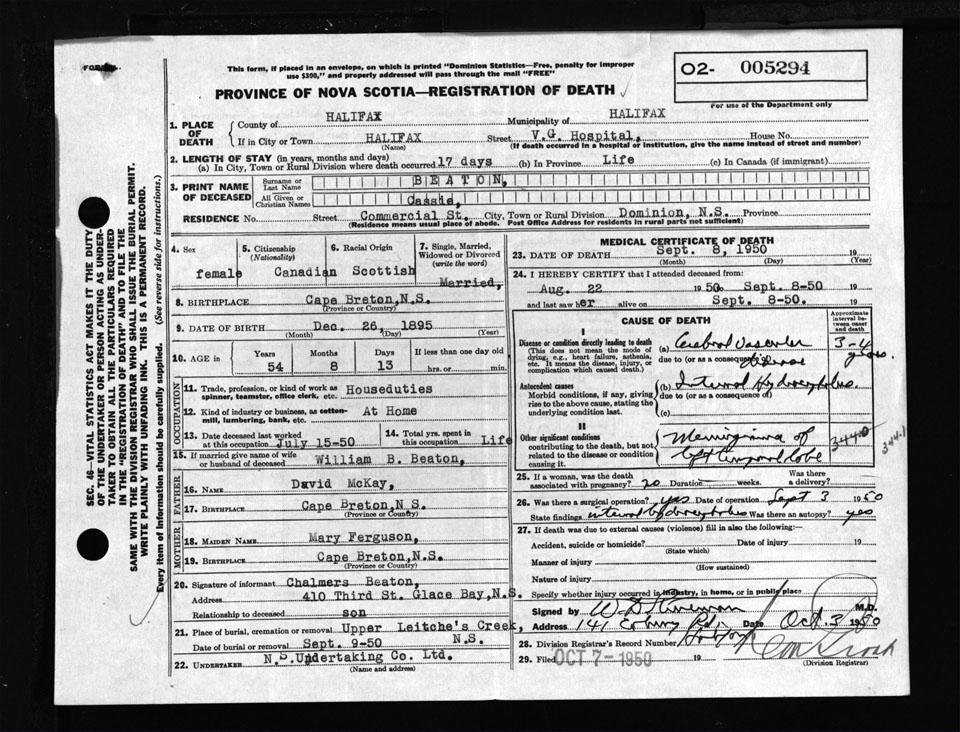 This form, if placed in an envelope, on which is printed "Dominion Statistics—Free, penalty for improper
use $300," and properly addressed will pass through the mail "FREE"
PROVINCE OF NOVA SCOTIA—REGISTRATION OF DEATH
O2- 005294
For use of the Department only
SEC. 46—VITAL STATISTICS ACT MAKES IT THE DUTY
OF THE UNDERTAKER OR PERSON ACTING AS UNDER-
TAKER TO OBTAIN ALL THE PARTICULARS REQUIRED
IN THE "REGISTRATION OF DEATH" AND TO FILE THE
SAME WITH THE DIVISION REGISTRAR WHO SHALL ISSUE THE BURIAL PERMIT.
WRITE PLAINLY WITH UNFADING INK. THIS IS A PERMANENT RECORD.
Every Item of Information should be carefully supplied. (See reverse side for instructions.)
1. PLACE OF DEATH
County of HALIFAX Municipality of HALIFAX
If in City or Town HALIFAX (Name) Street V.G. Hospital, House No.
(If death occurred in a hospital or institution, give the name instead of street and number)
2. LENGTH OF STAY (in years, months and days)
(a) In City, Town or Rural Division where death occurred 17 days (b) In Province Life (c) In Canada (if immigrant)
3. PRINT NAME OF DECEASED
Surname or Last Name BEATON,
All Given or Christian Names Cassie,
RESIDENCE No. Street Commercial St. City, Town or Rural Division Dominion, N.S. Province
(Residence means usual place of abode. Post Office Address for residents in rural parts not sufficient)
4. Sex female
5. Citizenship (Nationality) Canadian
6. Racial Origin Scottish
7. Single, Married, Widowed or Divorced (write the word) Married,
8. BIRTHPLACE Cape Breton,N.S.
(Province or Country)
9. DATE OF BIRTH Dec. 26, 1895
(Month) (Day) (Year)
10. AGE in Years 54 Months 8 Days 13 If less than one day old hrs. or min.
OCCUPATION
11. Trade, profession, or kind of work as spinner, teamster, office clerk, etc. Houseduties
12. Kind of industry or business, as cotton-mill, lumbering, bank, etc. At Home
13. Date deceased last worked at this occupation July 15-50
14. Total yrs. spent in this occupation Life
15. If married give name of wife or husband of deceased William B. Beaton,
FATHER
16. NAME David McKay,
17. BIRTHPLACE Cape Breton,N.S.
(Province or Country)
MOTHER
18. MAIDEN NAME Mary Ferguson,
19. BIRTHPLACE Cape Breton,N.S.
(Province or Country)
20. Signature of informant Chalmers Beaton,
Address 410 Third St. Glace Bay,N.S.
Relationship to deceased son
21. Place of burial, cremation or removal Upper Leitche's Creek, N.S.
Date of burial or removal Sept. 9-50
22. UNDERTAKER N.S.Undertaking Co. Ltd.
(Name and address)
MEDICAL CERTIFICATE OF DEATH
23. DATE OF DEATH Sept. 8, 1950 19
(Month) (Day) (Year)
24. I HEREBY CERTIFY that I attended deceased from:
Aug. 22 1950 Sept. 8-50 19
and last saw her alive on Sept. 8-50. 19
CAUSE OF DEATH
Approximate interval between onset and death
I
Disease or condition directly leading to death
(This does not mean the mode of dying, e.g., heart failure, asthenia, etc. It means the disease, injury, or complication which caused death.)
(a) Cerebral Vascular
due to (or as a consequence of) disease
3-4 years.
Antecedent causes
Morbid conditions, if any, giving rise to the above cause, stating the underlying condition last.
(b) Internal hydrocephalus.
due to (or as a consequence of)
(c)
II
Other significant conditions
contributing to the death, but not related to the disease or condition causing it.
Meningioma of
left temporal lobe
344.0
344.1
25. If a woman, was the death associated with pregnancy? no Duration weeks. Was there a delivery?
26. Was there a surgical operation? yes Date of operation Sept 3 1950
State findings internal hydrocephalus Was there an autopsy? yes
27. If death was due to external causes (violence) fill in also the following:—
Accident, suicide or homicide? Date of injury 19
(State which)
Manner of injury
(How sustained)
Nature of injury
Specify whether injury occurred in industry, in home, or in public place
Signed by M.D.
Address 141 Date Oct. 3 1950
28. Division Registrar's Record Number
29. Filed OCT 7-1950 19
(Division Registrar)